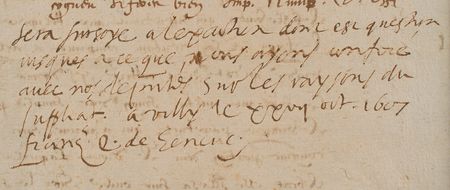 sera sursoye a lexecution dont est question
jusques a ce que nous ayons confere
avec nos deputés sur les raysons du
suppliat. a villy le xxvij oct. 1607
franç E. de Geneve.